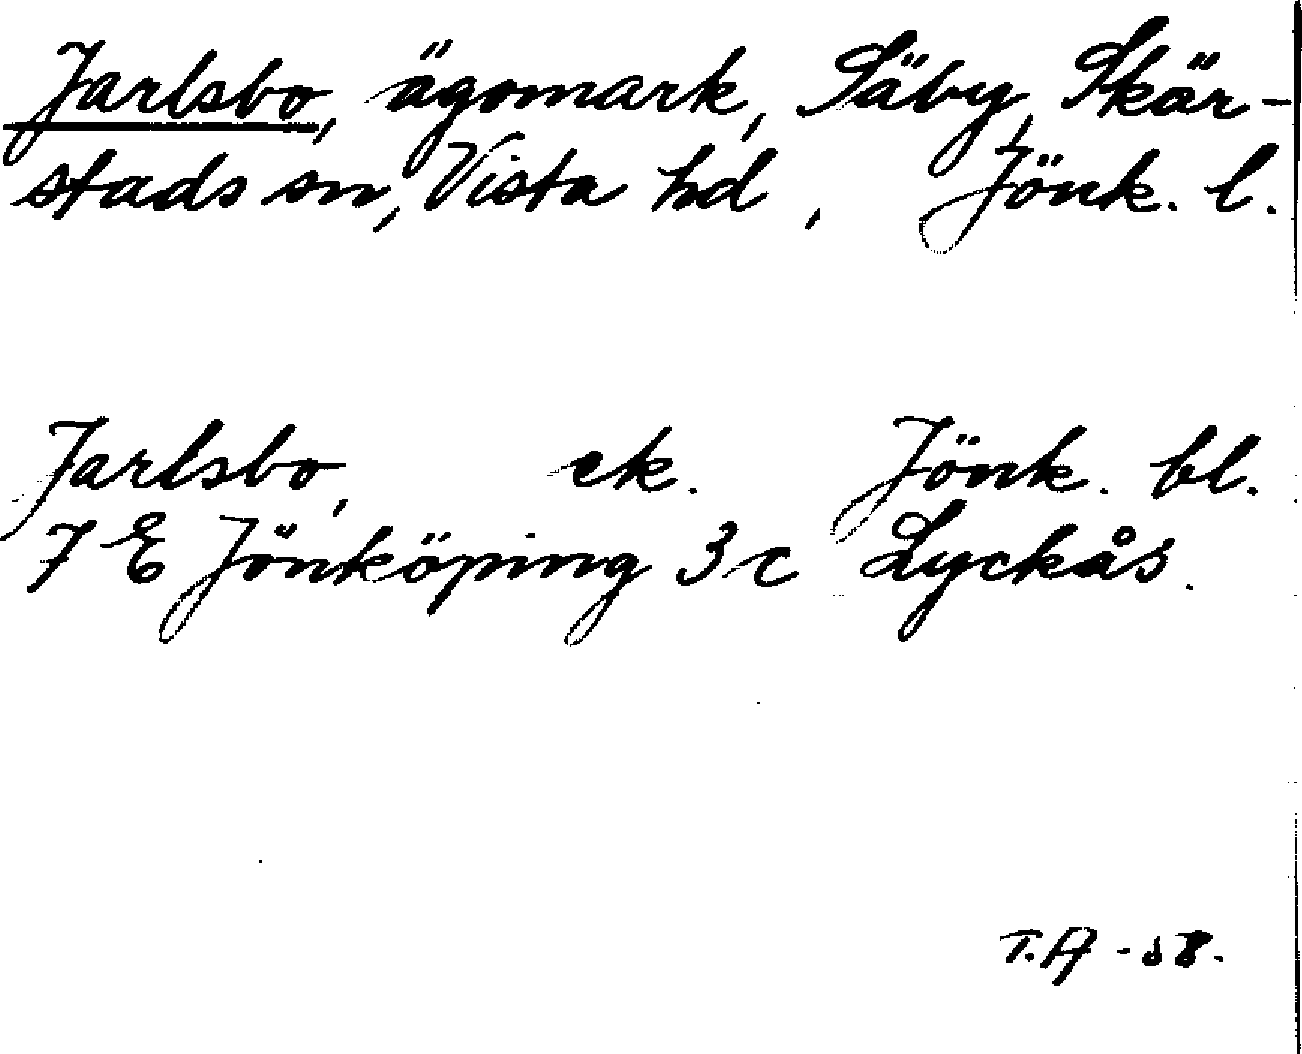 Jarlsbo, ägomark, Säby, Skär-
stads sn, Vista hd, Jönk. l.
Jarlsbo, ek. Jönk. bl.
7 E Jönköping 3 c Lyckås.